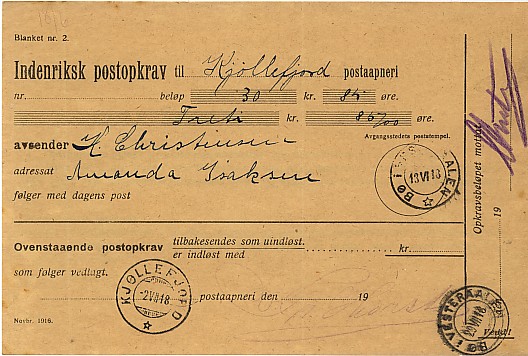 1816
Blanket nr. 2.
Indenriksk postopkrav til Kjøllefjord postaapneri
nr. beløp 30 kr. 85 øre.
Treti kr. 85/00 øre.
avsender K. Christiansen Avgangsstedets poststempel.
adressat Amanda Isaksen
følger med dagens post
BØ I VESTERAALEN
18 VI 18
Opkravsbeløpet mottat
19
Ovenstaaende postopkrav tilbakesendes som uindløst.
er indløst med kr.
som følger vedlagt.
KJØLLEFJORD
-2 VII 18
postaapneri den 19
BØ I VESTERAALEN
22 VII 18
Novbr. 1916.
Vend!